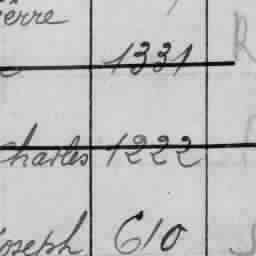 ièrre
e 1331
Charles 1222
Joseph 610